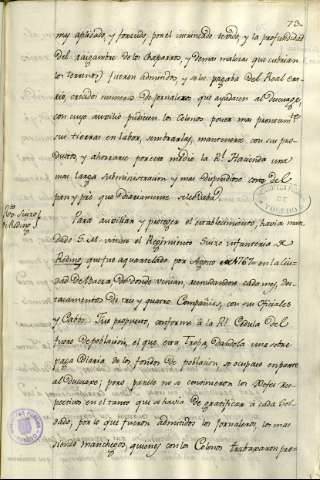 73
muy aplicado, y forzudo, por el inmenso trabajo, y la profundidad
del raigambre de los Chaparros, y demas malezas que cubrian
los terrenos) fueron admitidos, y se les pagaba del Real era-
rio, crecido numero de jornaleros que ayudasen al descuage,
con cuyo auxilio pudiesen los Colonos poner mas prontamte
sus tierras en labor, sembrarlas, mantenerse con sus pro-
ductos, y ahorrarse por este medio la Rl. Hacienda una
mas larga subministracion y mas dispendioso coste del
pan y pre que diariamente se les daba.
Rto. Suizo
de Reding
Para auxiliar y proteger el establecimiento, havia man-
dado S.M. venir el Regimiento Suizo infanteria de
Reding que fue aquartelado por Agosto de 1767 en la Ciu-
dad de Baeza, de donde venian, mudandose cada mes, des-
tacamentos de tres y quatro Compañias, con sus Oficiales
y Cabos. Fue propuesto, conforme à la Rl. Cedula del
fuero de poblacion, el que esta Tropa, dandola una sobre
paga diaria de los fondos de poblacion se ocupase en parte
al descuage; pero parece no se convinieron los Gefes res-
pectivos en el tanto que se havia de gratificar à cada Sol-
dado, por lo que fueron admitidos los jornaleros, los mas
de ellos manchegos, quienes con los Colonos trabajaron pro-